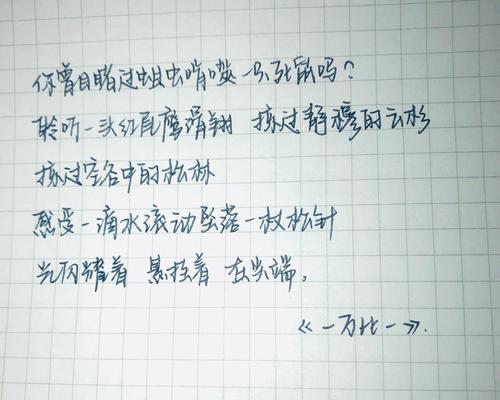 你曾目睹过蛆虫啃噬一只死鼠吗?
聆听一头红尾鹰滑翔 掠过静穆的云杉
掠过空谷中的松林
感受一滴水滚动坠落一枚松针
光闪耀着 悬挂着 在尖端。
《一万比一》.